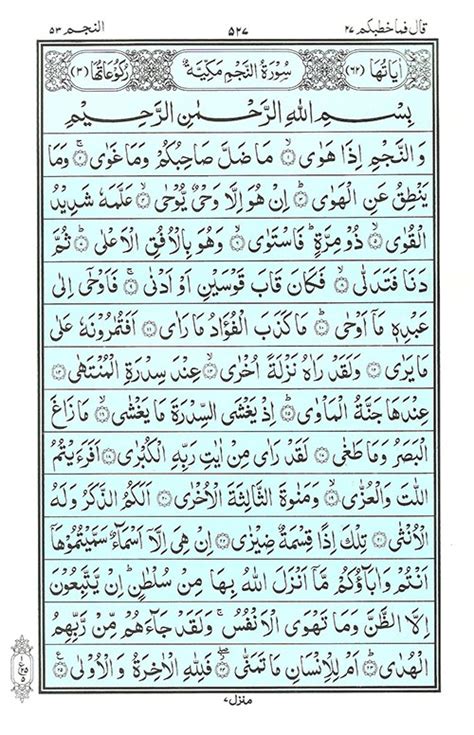 قال فما خطبكم ٢٧ ٥٢٧ النجم ٥٣
اٰيَاتُهَا (٦٢) سُوْرَةُ النَّجْمِ مَكِّيَّةٌ رُكُوْعَاتُهَا (٣)
بِسْمِ اللهِ الرَّحْمٰنِ الرَّحِيْمِ
وَالنَّجْمِ اِذَا هَوٰى ۝١ مَا ضَلَّ صَاحِبُكُمْ وَمَا غَوٰى ۝٢ وَمَا
يَنْطِقُ عَنِ الْهَوٰى ۝٣ اِنْ هُوَ اِلَّا وَحْيٌ يُّوْحٰى ۝٤ عَلَّمَهٗ شَدِيْدُ
الْقُوٰى ۝٥ ذُوْ مِرَّةٍ فَاسْتَوٰى ۝٦ وَهُوَ بِالْاُفُقِ الْاَعْلٰى ۝٧ ثُمَّ
دَنَا فَتَدَلّٰى ۝٨ فَكَانَ قَابَ قَوْسَيْنِ اَوْ اَدْنٰى ۝٩ فَاَوْحٰۤى اِلٰى
عَبْدِهٖ مَاۤ اَوْحٰى ۝١٠ مَا كَذَبَ الْفُؤَادُ مَا رَاٰى ۝١١ اَفَتُمٰرُوْنَهٗ عَلٰى
مَا يَرٰى ۝١٢ وَلَقَدْ رَاٰهُ نَزْلَةً اُخْرٰى ۝١٣ عِنْدَ سِدْرَةِ الْمُنْتَهٰى ۝١٤
عِنْدَهَا جَنَّةُ الْمَاْوٰى ۝١٥ اِذْ يَغْشَى السِّدْرَةَ مَا يَغْشٰى ۝١٦ مَا زَاغَ
الْبَصَرُ وَمَا طَغٰى ۝١٧ لَقَدْ رَاٰى مِنْ اٰيٰتِ رَبِّهِ الْكُبْرٰى ۝١٨ اَفَرَءَيْتُمُ
اللّٰتَ وَالْعُزّٰى ۝١٩ وَمَنٰوةَ الثَّالِثَةَ الْاُخْرٰى ۝٢٠ اَلَكُمُ الذَّكَرُ وَلَهُ
الْاُنْثٰى ۝٢١ تِلْكَ اِذًا قِسْمَةٌ ضِيْزٰى ۝٢٢ اِنْ هِيَ اِلَّاۤ اَسْمَآءٌ سَمَّيْتُمُوْهَاۤ
اَنْتُمْ وَاٰبَآؤُكُمْ مَّاۤ اَنْزَلَ اللهُ بِهَا مِنْ سُلْطٰنٍ اِنْ يَّتَّبِعُوْنَ
اِلَّا الظَّنَّ وَمَا تَهْوَى الْاَنْفُسُ وَلَقَدْ جَآءَهُمْ مِّنْ رَّبِّهِمُ
الْهُدٰى ۝٢٣ اَمْ لِلْاِنْسَانِ مَا تَمَنّٰى ۝٢٤ فَلِلّٰهِ الْاٰخِرَةُ وَالْاُوْلٰى ۝٢٥
منزل ٧